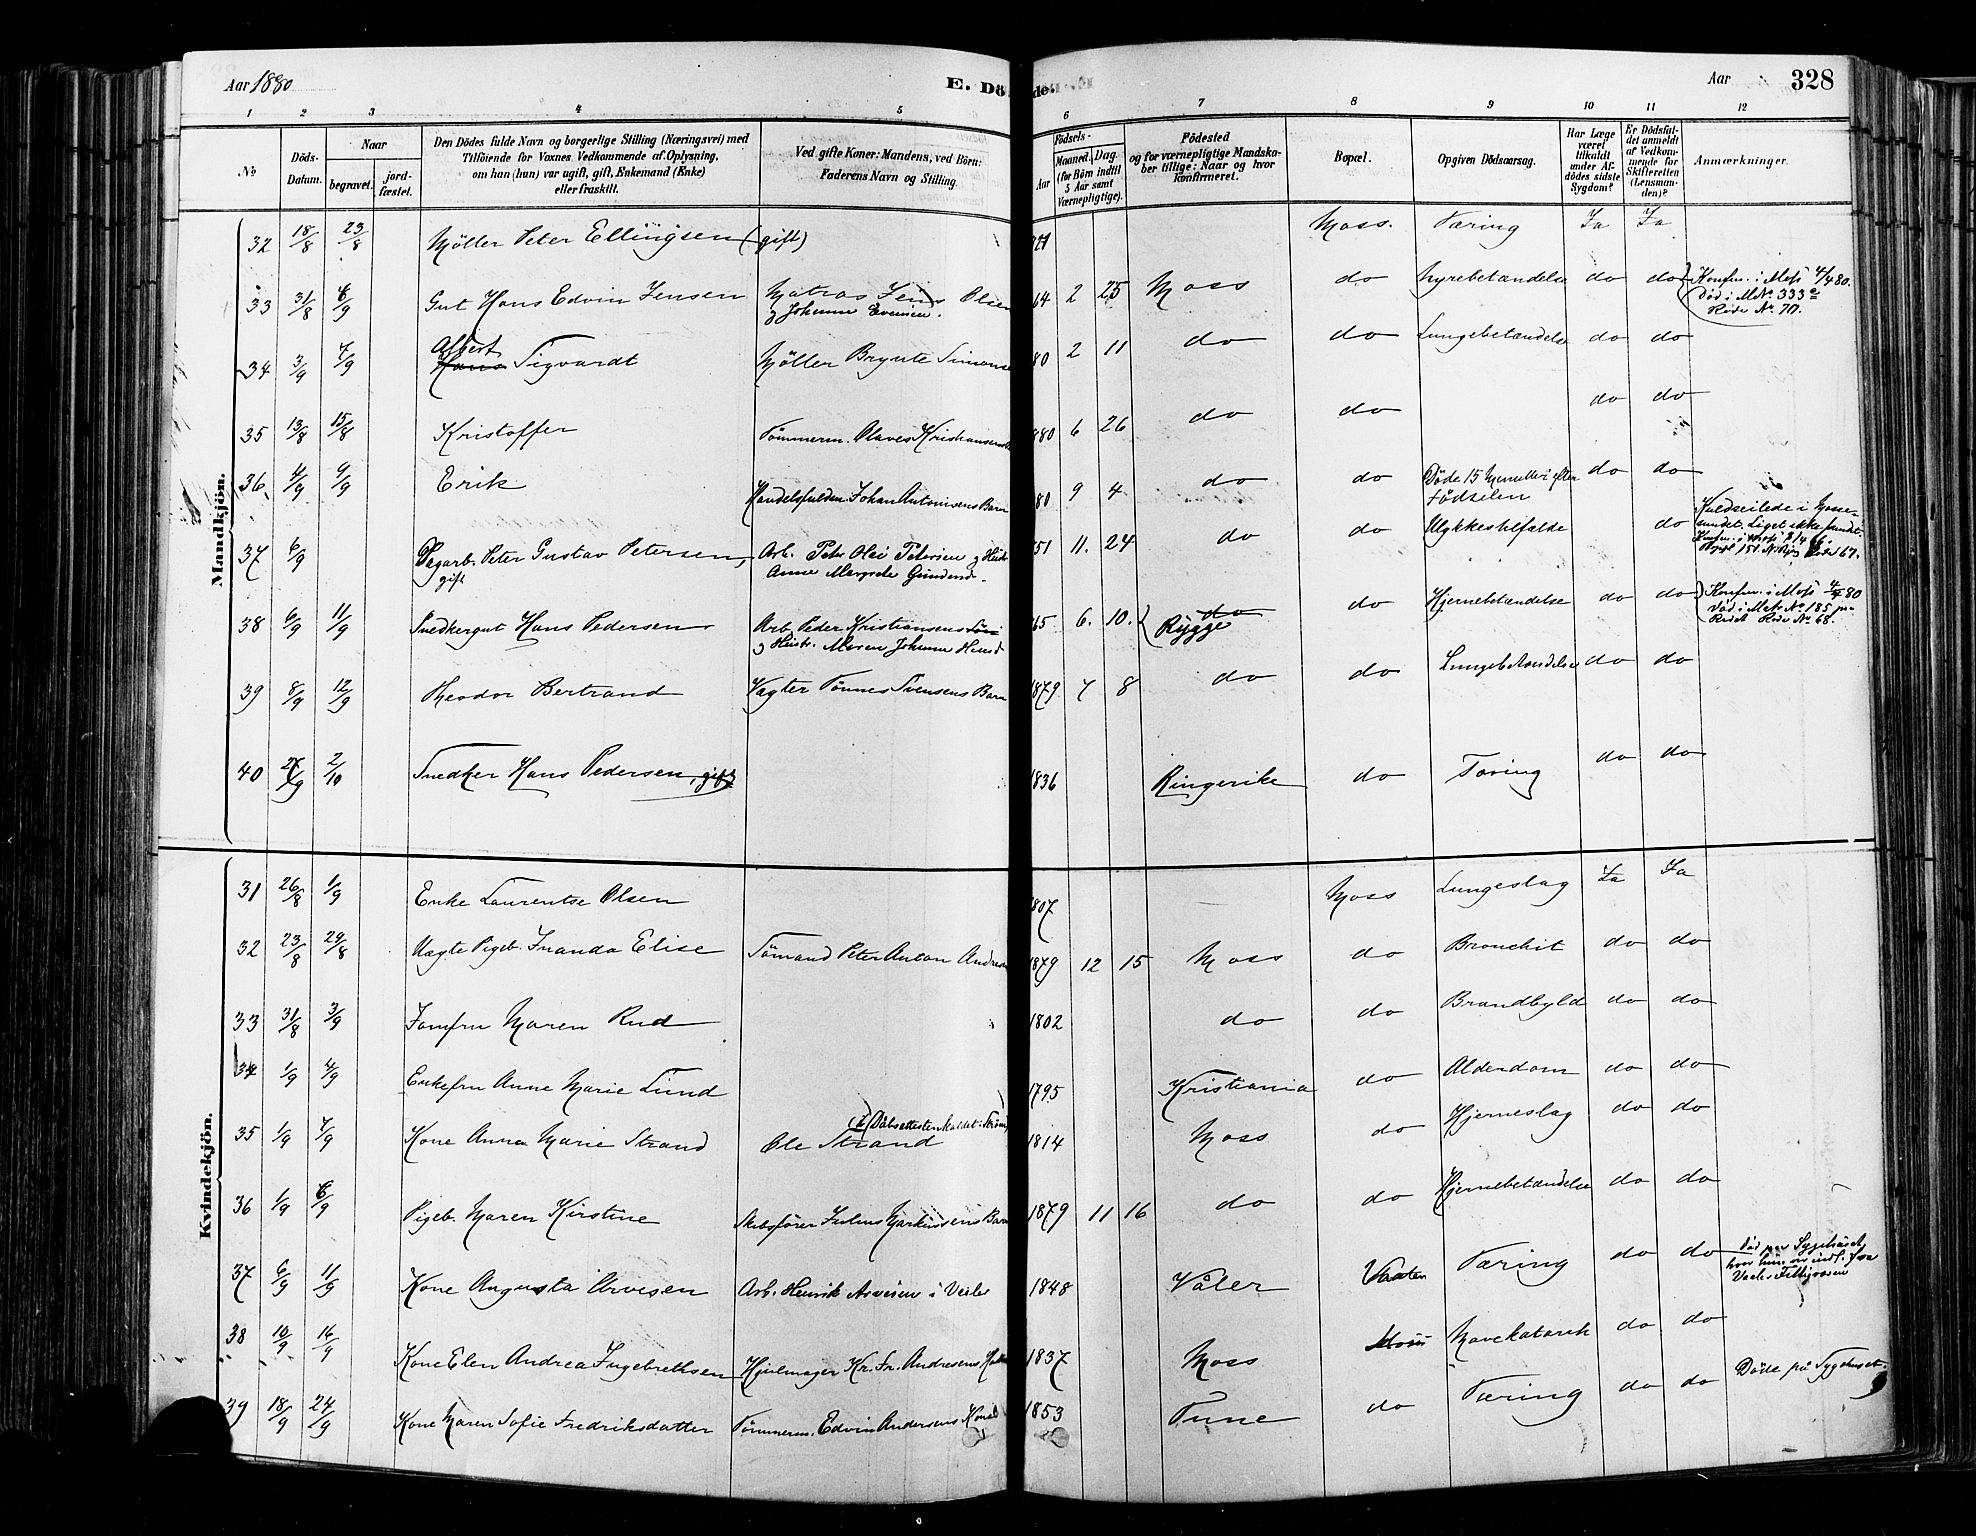 Aar 1880
E. Dö de.
Aar
328
1 2 3 4 5 6 7 8 9 10 11 12
No
Döds-Datum.
Naar
begravet.
jord-fæstet.
Den Dödes fulde Navn og borgerlige Stilling (Næringsvei) med
Tilföiende for Voxnes Vedkommende af Oplysning,
om han (hun) var ugift, gift, Enkemand (Enke)
eller fraskilt.
Ved gifte Koner: Mandens, ved Börn:
Faderens Navn og Stilling.
Födsels-
Aar
Maaned. Dag.
(for Börn indtil
5 Aar samt
Værnepligtige).
Födested
og for værnepligtige Mandska-
ber tillige: Naar og hvor
konfirmeret.
Bopæl.
Opgiven Dödsaarsag.
Har Læge
været
tilkaldt
under Af-
dödes sidste
Sygdom?
Er Dödsfal-
det anmeldt
af Vedkom-
mende for
Skifteretten
(Lensman-
den)?
Anmærkninger.
Mandkjön.
32 18/8 23/8 Møller Peter Ellingsen (gift) Moss. Tæring Ja Ja
33 31/8 6/9 Gut Hans Edvin Jensen Matros Jens Olsen 64 2 25 Moss do Nyrebetændelse do do Konfm. i Moss 4/4 80.
& Johanne Evensen. Död i M. No. 333
Rode No. 70.
34 3/9 7/9 Albert Hans Sigvardt Møller Brynte Simons 80 2 11 do do Lungebetændelse do do
35 13/8 15/8 Kristoffer Tømmerm. Olaves Kristiansens 880 6 26 do do do do
36 4/9 9/9 Erik Handelsfuldm. Johan Antonisens Barn 80 9 4 do do Döde 15 Minutter efter do do
Födselen
37 6/9 Dagarb. Peter Gustav Petersen, Arb. Peter Olai Petersen & Hustr. 51 11. 24 do do Ulykkestilfælde do Kuldseilede i Mosse-
sundet. Liget ikke fundet.
gift Anne Margrete Gundersd.
38 6/9 11/9 Snedkergut Hans Pedersen Arb. Peder Kristiansens Søn 65 6. 10. do do Hjernebetændelse do do Konfm. i Moss 4/4 80
Rygge Död i M. No. 185
& Hustr. Maren Johanne Hansd Rode No. 68.
39 8/9 12/9 Theodor Bertrand Vagter Tønnes Svensens Barn 1879 7 8 do do Lungebetændelse do do
40 27/9 2/10 Snedker Hans Pedersen, gift 1836 Ringerike do Tæring do do
Kvindekjön.
31 26/8 1/9 Enke Laurentse Olsen 1807 Moss Lungeslag Ja Ja
32 23/8 29/8 Uægte Pigeb. Inanda Elise Sømand Peter Anton Andres 1879 12 15 Moss do Bronchit do do
33 31/8 3/9 Jomfru Maren Rud 1802 do do Brandbyld do do
34 1/9 4/9 Enkefru Anne Marie Lund 1795 Kristiania do Alderdom do do
35 1/9 7/9 Kone Anna Marie Strand Ole Strand (i Dåbsattesten kaldet: Strøm) 1814 Moss do Hjerneslag do do
36 1/9 6/9 Pigeb. Maren Kirstine Skibsfører Julius Markussens Barn 1879 11 16 do do Hjernebetændelse do do
37 6/9 11/9 Kone Augusta Arvesen Arb. Henrik Arvesen i Veiler 1848 Våler Vaaler Tæring do do Död paa Sygehuset,
hvor hun var indl. fra
38 10/9 16/9 Kone Elen Andrea Ingebrethsen Hjulmager Kr. Fr. Andresens 1837 Moss Moss Mavekatarrh do do
39 18/9 24/9 Kone Maren Sofie Fredriksdatter Tømmerm. Edvin Andersens Kone 1853 Tune do Tæring do do Döde på Sygehuset.